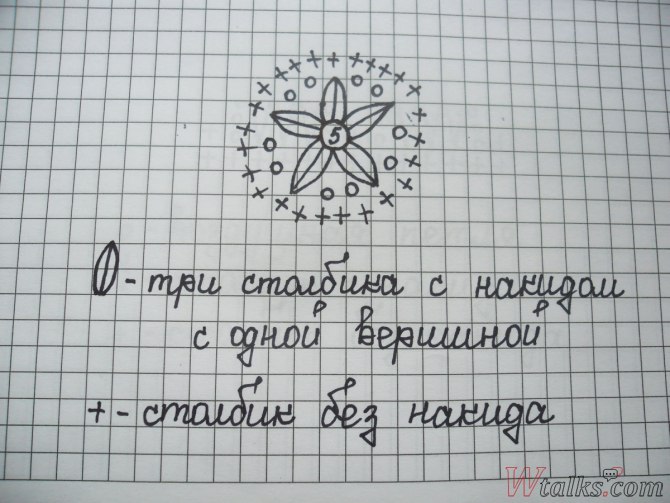 5
- три столбика с накидом
с одной вершиной
+ - столбик без накида
Wtalks.com